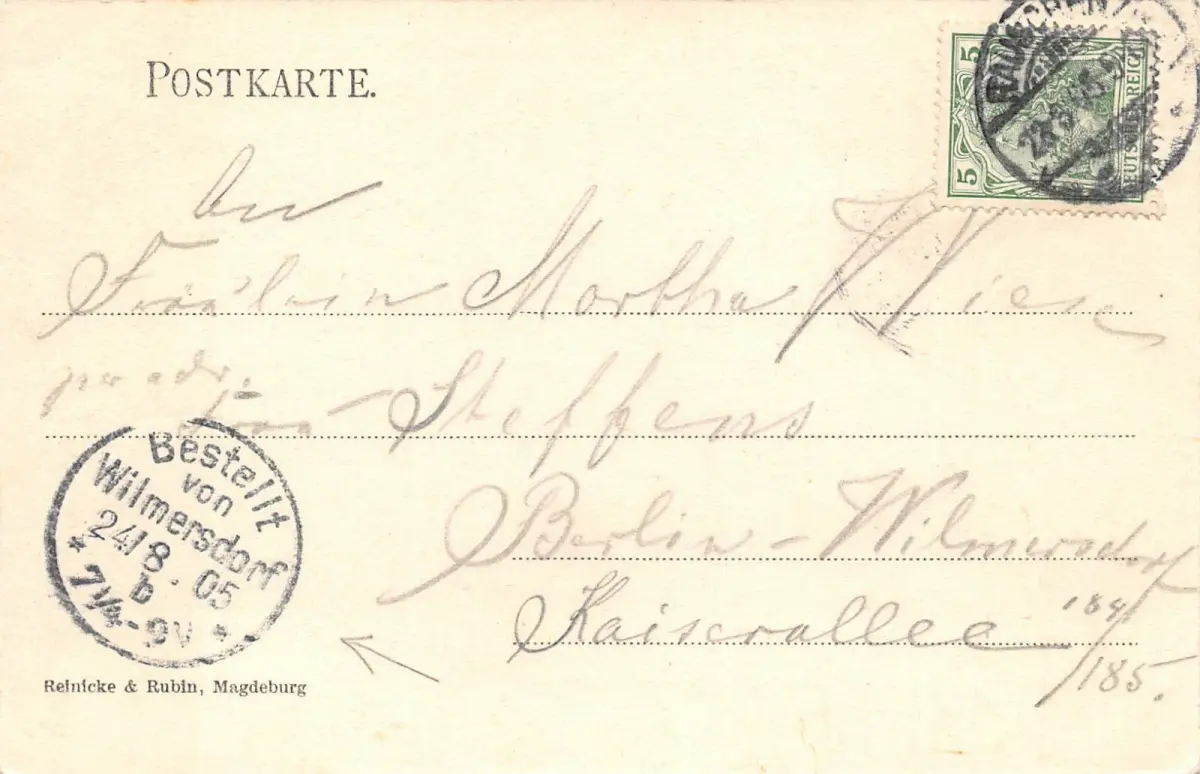 POSTKARTE.
5 5
DEUTSCHES REICH
An
Fräulein Martha Wiese
per adr.
Frau Steffens
Berlin – Wilmersdorf
Kaiserallee 184/
185.
Bestellt
von
Wilmersdorf
24/8. 05
b
7¼-9V
Reinicke & Rubin, Magdeburg